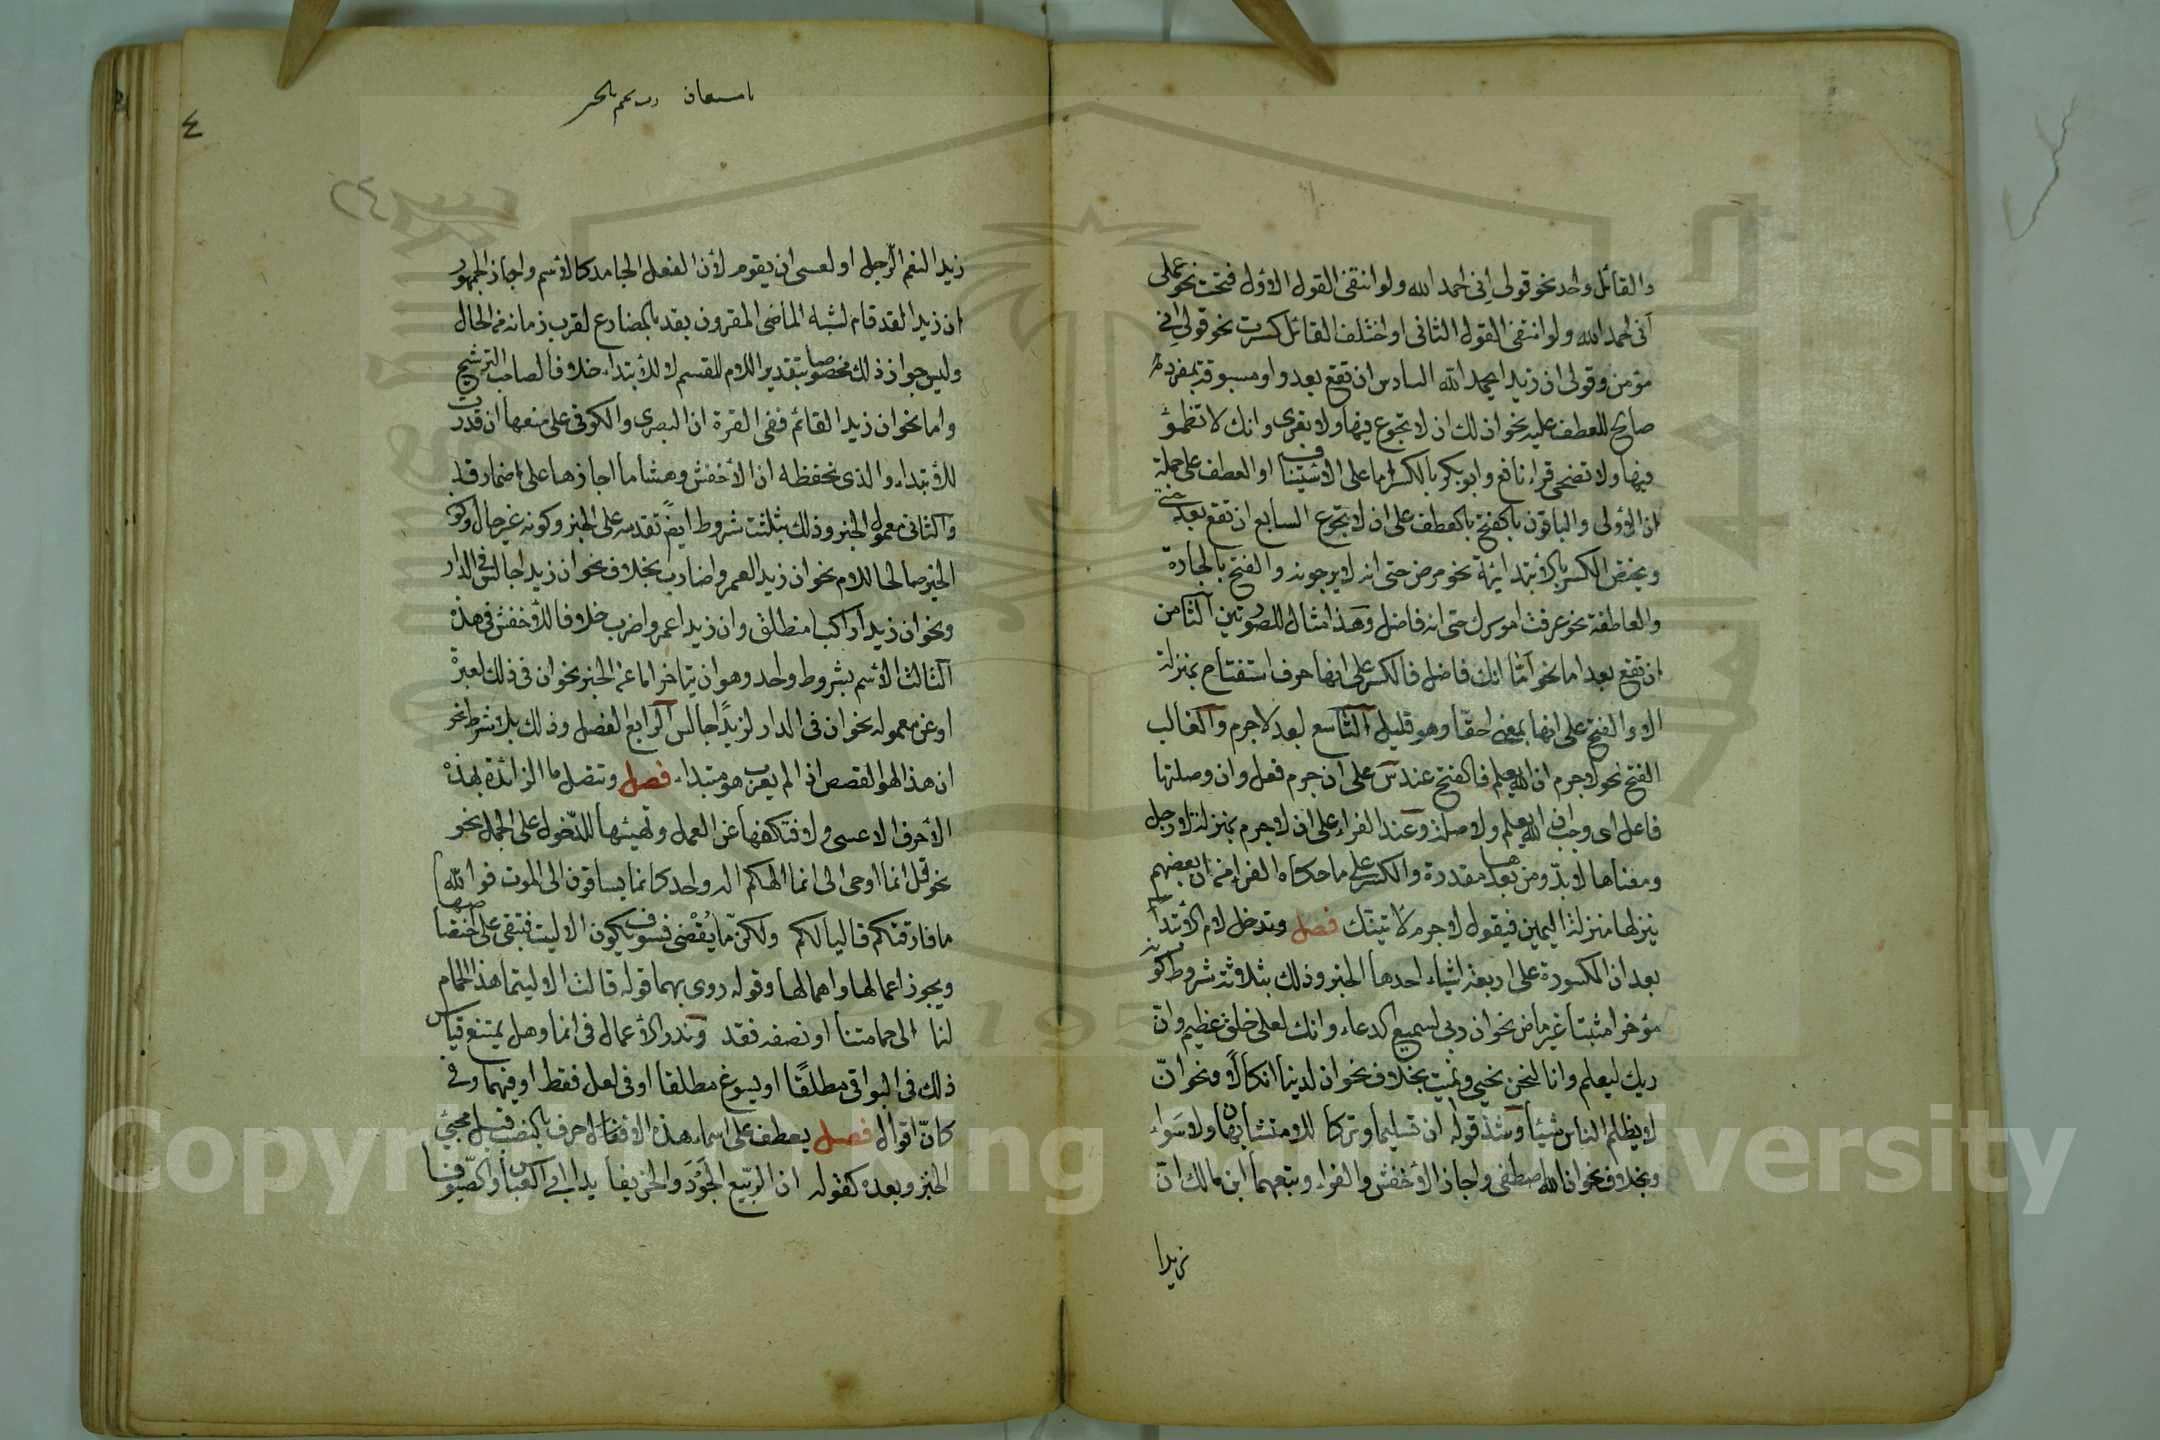 والقائل واحد نحو قولى انى احمد الله ولو انتفى القول الاول فتحت نحو عملى
انى احمد الله ولو انتفى القول الثانى او اختلف القائل كسرت نحو قولى انى
مؤمن وقولى ان زيدا يحمد الله السادس ان تقع بعد واو مسبوقة بمفرد
صالح للعطف عليه نحو ان لك ان لا تجوع فيها ولا تعرى وانك لا تظمؤ
فيها ولا تضحى قرا نافع وابو بكر بالكسر اما على الاستيناف او العطف على جملة
ان الاولى والباقون بالفتح بالعطف على ان لا تجوع السابع ان تقع بعد حتى
ويختص الكسر بالابتدائية نحو مرض حتى انه لا يرجونه والفتح بالجارة
والعاطفة نحو عرفت امورك حتى انه فاضل وهذا مثال للصورتين الثامن
ان تقع بعد اما نحو اما انك فاضل فالكسر على انها حرف استفتاح بمنزلة
الا والفتح على انها بمعنى احقا وهو قليل التاسع بعد لا جرم والغالب
الفتح نحو لا جرم ان الله يعلم فالفتح عند س على ان جرم فعل وان وصلتها
فاعل اى وجب ان الله يعلم ولا صلة وعند الفراء على ان لا جرم بمنزلة لا رجل
ومعناها لا بد ومن بعدها مقدرة والكسر على ما حكاه الفراء من ان بعضهم
ينزلها منزلة اليمين فيقول لا جرم لاتينك فصل وتدخل لام الابتداء
بعد ان المكسورة على اربعة اشياء احدها الخبر وذلك بثلاثة شروط كونه
مؤخرا مثبتا غير ماض نحو ان ربى لسميع الدعاء وانك لعلى خلق عظيم وان
ربك ليعلم وانا لنحن نحيى ونميت بخلاف نحو ان لدينا انكالا ونحو ان
لا يظلم الناس شيئا وشذ قوله ان تسليما وتركا للا متشابهان ولا سواء
وبخلاف نحو ان الله اصطفى واجاز الاخفش والفراء وتبعهما ابن مالك ان
زيدا
٤
زيدا لنعم الرجل او لعسى ان يقوم لأن الفعل الجامد كالاسم واجاز الجمهور
ان زيدا لقد قام لشبه الماضى المقرون بقد بالمضارع لقرب زمانه من الحال
وليس جواز ذلك مخصوصا بتقدير اللام للقسم لا للابتداء خلافا لصاحب الترشيح
واما نحو ان زيدا لقائم ففى الغرة ان البصرى والكوفى على منعها ان قدرت
للابتداء والذى نحفظه ان الاخفش وهشاما اجازها على اضمار قد
والثانى معمول الخبر وذلك بثلثت شروط ايضً تقدمه على الخبر وكونه غير حال وكون
الخبر صالحا للام نحو ان زيدا لعمروا ضارب بخلاف نحو ان زيدا جالس فى الدار
ونحو ان زيدا راكبا منطلق وان زيدا عمروا ضرب خلافا للاخفش فى هذه
الثالث الاسم بشروط واحد وهو ان يتاخر اما عن الخبر نحو ان فى ذلك لعبرة
او عن معموله نحو ان فى الدار لزيدًا جالس الرابع الفصل وذلك بلا شرط نحو
ان هذا لهو القصص اذ الم يعرب هو مبتداء فصل وتتصل ما الزائدة بهذه
الأحرف الا عسى ولا فتكفها عن العمل وتهيئها للدخول على الجمل نحو
نحو قل انما اوحى الى انما الهكم اله واحد كانما يساقون الى الموت فوالله
ما فارقتكم قاليا لكم ولكن ما يُقْضى فسوف يكون الا ليت فتبقى على اختصاصها
ويجوز اعمالها واهمالها وقوله روى بهما قوله قالت الا ليتما هذا الحمام
لنا الى حمامتنا او نصفه فقد وندر الأعمال فى انما وهل يمتنع قياس
ذلك فى البواقى مطلقًا او يسوغ مطلقا او فى لعل فقط او فيهما وفى
كانّ اقوال فصل يعطف على اسماء هذه الاحرف بالنصب قبل مجئ
الخبر وبعده كقوله ان الربيع الجَوْدَ والخريفا يدا ابى العباس والصيوفا